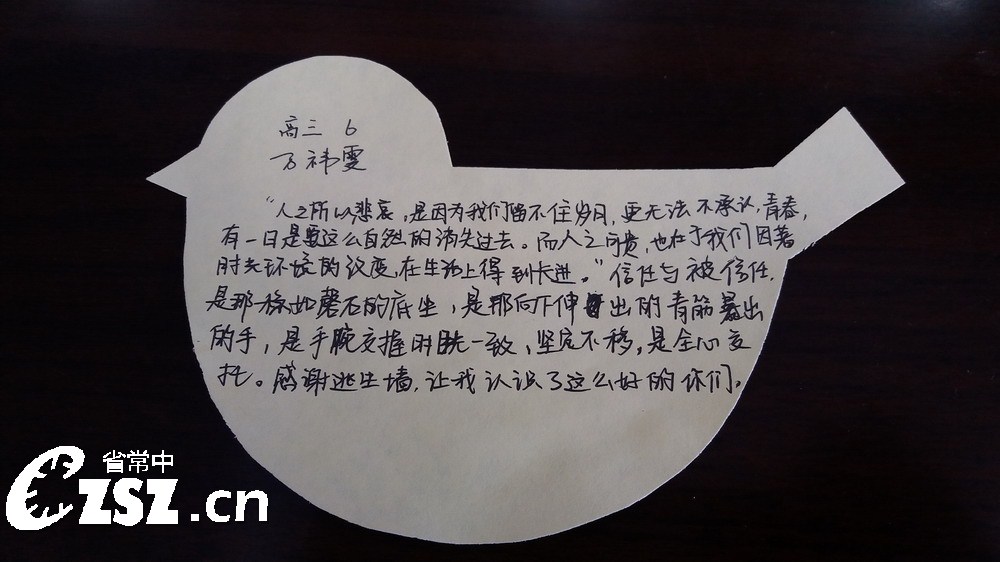 高三 6
万祎雯
“人之所以悲哀，是因为我们留不住岁月，更无法不承认，青春，
有一日是要这么自然的消失过去。而人之可贵，也在于我们因着
时光环境的改变，在生活上得到长进。”信任与被信任，
是那稳如磐石的底坐，是那向下伸出的青筋暴出
的手，是手腕交握时眺一致，坚定不移，是全心交
托。感谢逃生墙，让我认识了这么好的你们。
省常中
CZSZ.cn